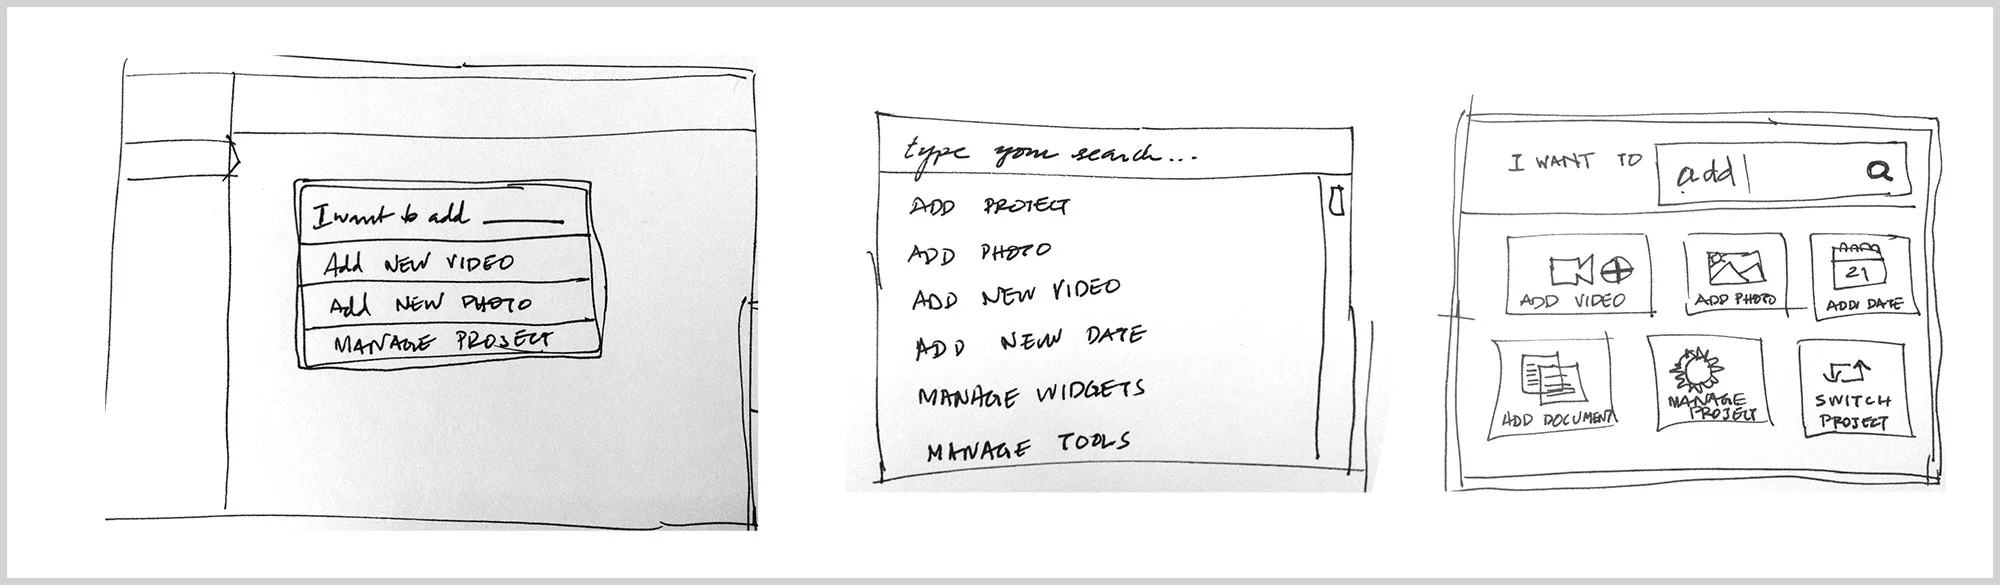 I want to add ______
Add NEW VIDEO
Add NEW PHOTO
MANAGE PROJECT
type your search...
ADD PROJECT
ADD PHOTO
ADD NEW VIDEO
ADD NEW DATE
MANAGE WIDGETS
MANAGE TOOLS
I WANT TO add
ADD VIDEO
ADD PHOTO
21
ADD DATE
ADD DOCUMENT
MANAGE
PROJECT
SWITCH
PROJECT